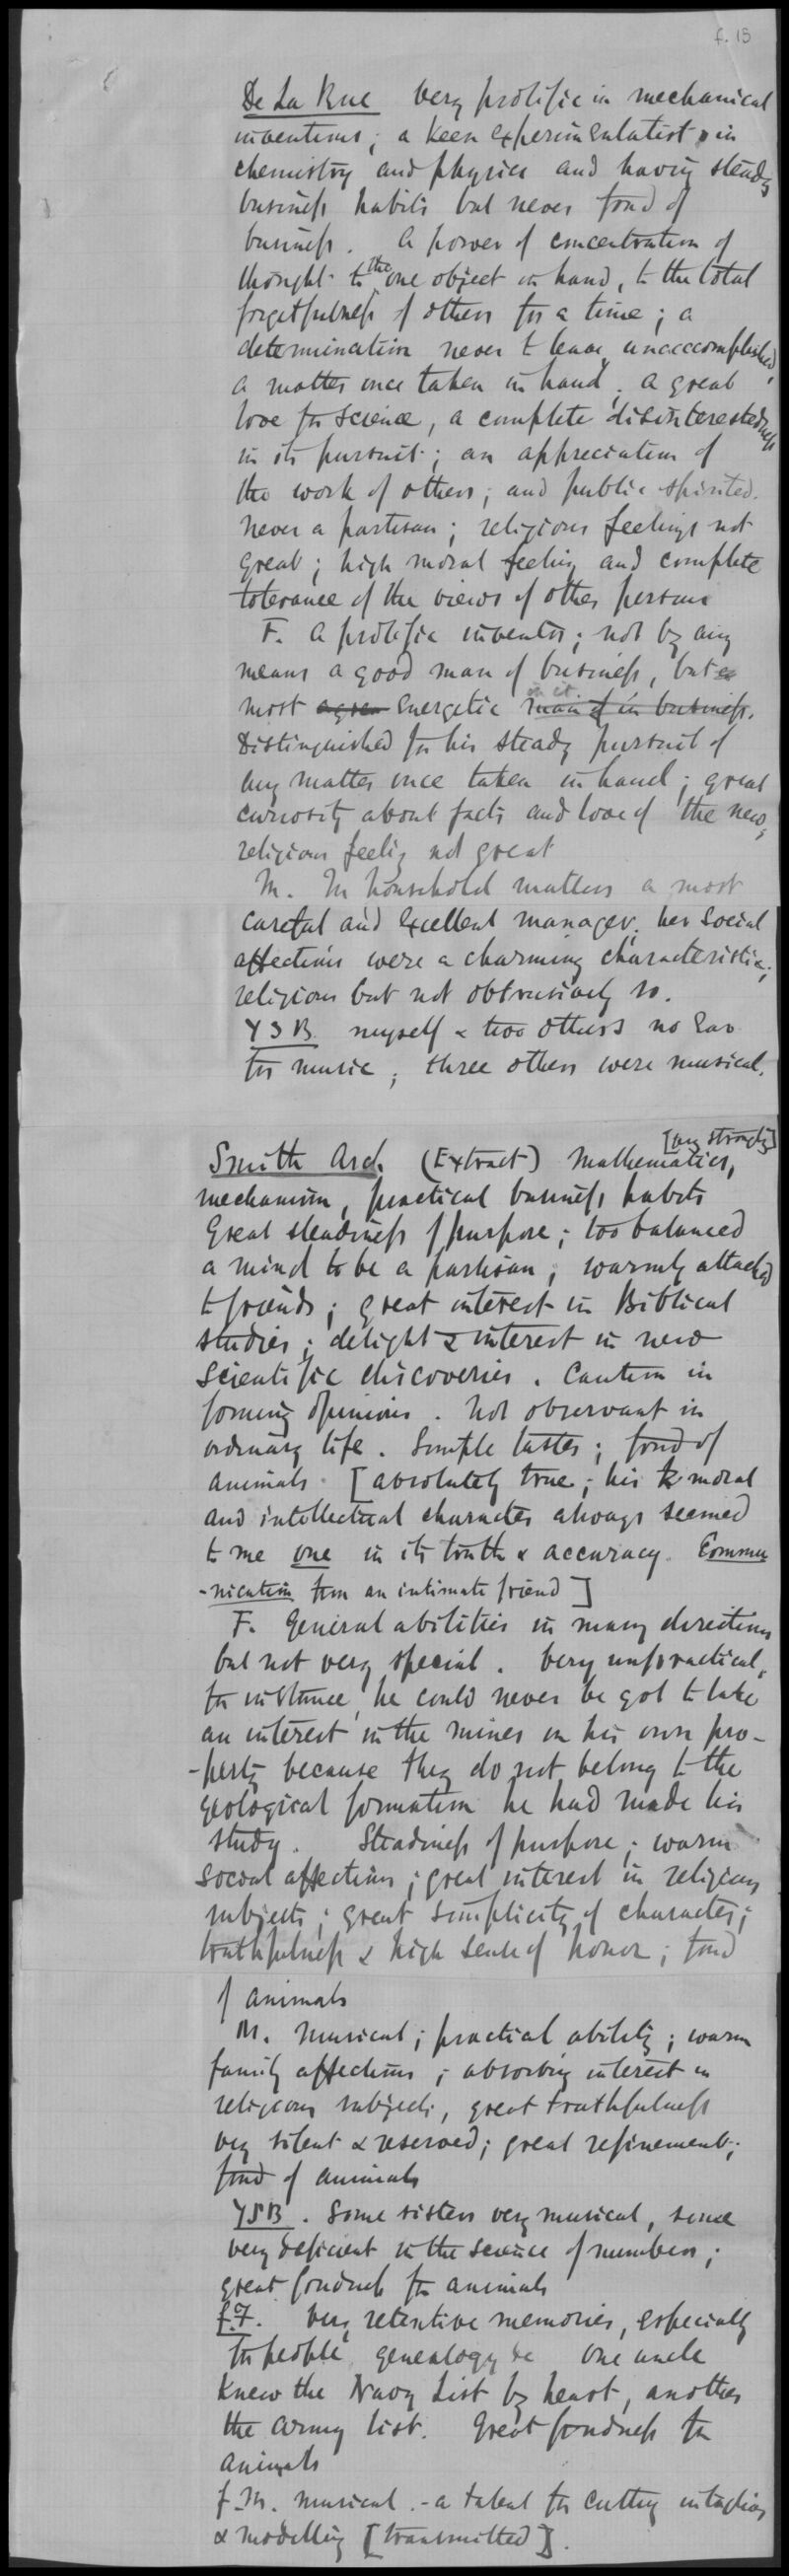 f. 15
De La Rue very prolific in mechanical
inventions; a keen experimentalist in
chemistry and physics and having steady
business habits but never fond of
business. A power of concentration of
thought to the one object in hand, to the total
forgetfulness of others for a time; a
determination never to leave unacccomplished,
a matter once taken in hand; a great
love for Science, a complete disinterestedness
in its pursuit; an appreciation of
the work of others; and public spirited.
never a partisan; religious feelings not
great; high moral feeling and complete
tolerance of the views of other persons
F. A prolific inventor; not by any
means a good man of business, but
most a great Energetic in it man of in business.
Distinguished for his steady pursuit of
any matter once taken in hand; great
curiosity about facts and love of the new;
religious feeling not great
M. In household matters a most
careful and excellent manager; her social
affections were a charming characteristic;
religious but not obtrusively so.
YSB myself & two others no Ear
for music; three others were musical.
Smith Arch. (Extract) Mathematics, [very strongly]
mechanism, practical business habits
Great steadiness of purpose; too balanced
a mind to be a partisan; warmly attached
to friends; great interest in Biblical
studies; delight & interest in new
scientific discoveries. Caution in
forming opinions. Not observant in
ordinary life. Simple tastes; fond of
animals [absolutely true; his moral
and intellectual character always seemed
to me one in its truth & accuracy. Commu
-nication from an intimate friend]
F. General abilities in many directions
but not very special. Very unpractical,
for instance, he could never be got to take
an interest in the mines on his own pro-
-perty because they do not belong to the
geological formation he had made his
study. Steadiness of purpose; warm
social affections; great interest in religious
subjects; great simplicity of character;
truthfulness & high sense of honor; fond
of animals
M. Musical; practical ability; warm
family affections; absorbing interest in
religious subjects, great truthfulness
very silent & reserved; great refinement;
fond of animals
YSB. Some sisters very musical, some
very deficient in the science of numbers;
great fondness for animals
f.F. Very retentive memories, especially
for people, genealogy &c one uncle
knew the Navy List by heart, another
the Army list. Great fondness for
animals
f.M. musical - a talent for cutting intaglios
& modelling [transmitted].